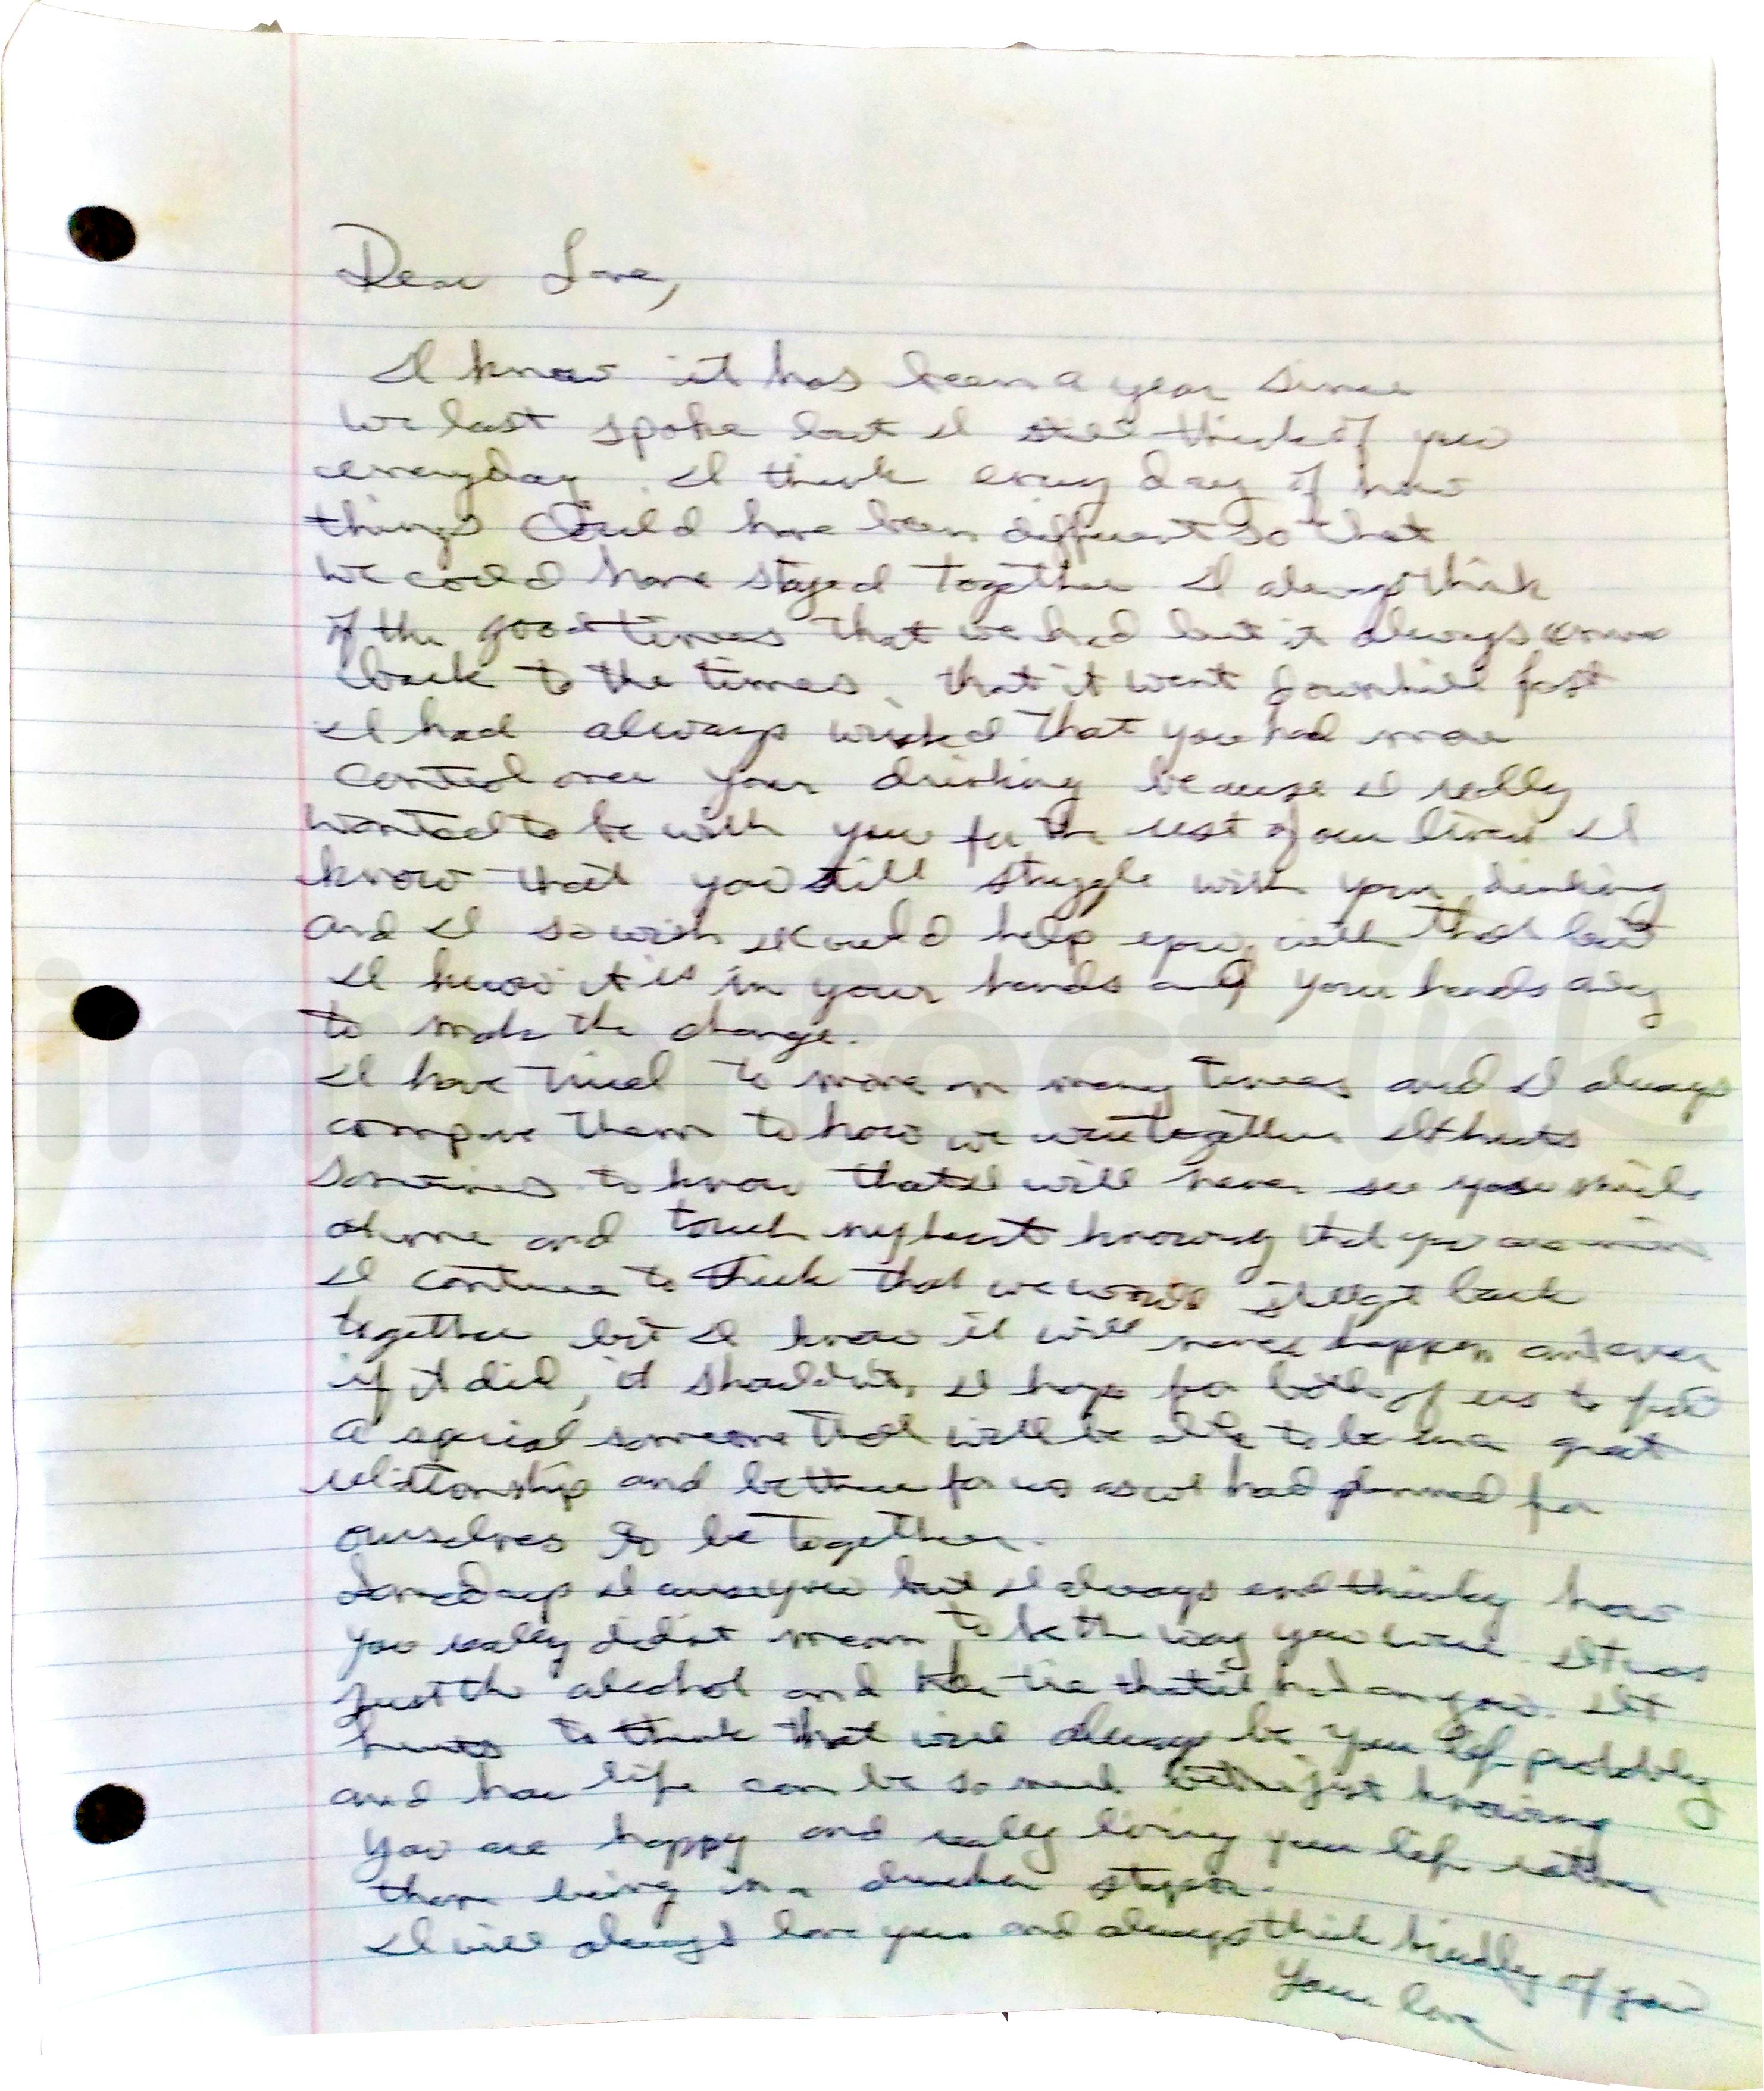 Dear Love,
I know it has been a year since
we last spoke but I still think of you
everyday. I think every day of how
things could have been different so that
we could have stayed together I always think
of the good times that we had but it always comes
back to the times, that it went downhill fast
I had always wished that you had more
control over your drinking because I really
wanted to be with you for the rest of our lives I
know that you still struggle with your drinking
and I so wish I could help you with that but
I know it is in your hands and your hands only
to make the change.
I have tried to move on many times and I always
compare them to how we were together It hurts
sometimes to know that I will never see you smile
at me and touch my heart knowing that you are mine
I continue to think that we would still get back
together but I know it will never happen and even
if it did, it shouldn't, I hope for both of us to find
a special someone that will be able to be in a great
relationship and be there for us as we had planned for
ourselves to be together.
Some days I curse you but I always end thinking how
you really didn't mean to be the way you were It was
just the alcohol and the tie that it had on you. It
hurts to think that will always be your life probably
and how life can be so much better just knowing
you are happy and really living your life rather
than being in a drunken stupor.
I will always love you and always think kindly of you
Your love
imperfect ink